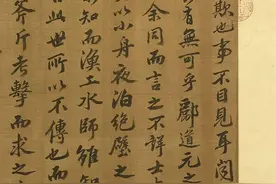 欺也事不目見耳聞
有無可乎酈道元之
余同而言之不詳士
以小舟夜泊絕壁之
知而漁工水師雖知
此世所以不傳也而
斧斤考擊而求之